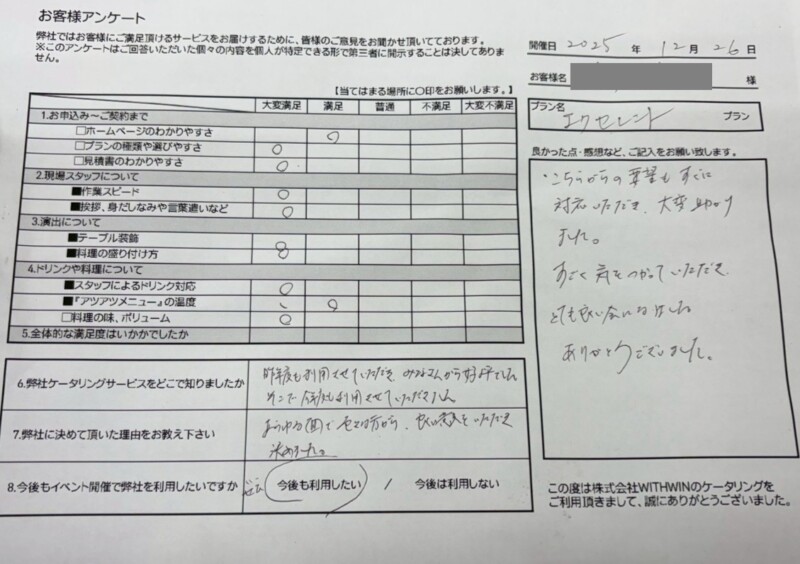 お客様アンケート
弊社ではお客様にご満足頂けるサービスをお届けするために、皆様のご意見をお聞かせ頂いております。
※このアンケートはご回答いただいた個々の内容を個人が特定できる形で第三者に開示することは決してありません。
開催日 2025 年 12 月 26 日
お客様名 様
【当てはまる場所に〇印をお願いします。】
プラン名 エクセレント プラン
大変満足 満足 普通 不満足 大変不満足
1.お申込み～ご契約まで
□ホームページのわかりやすさ ○
□プランの種類や選びやすさ ○
□見積書のわかりやすさ ○
2.現場スタッフについて
■作業スピード ○
■挨拶、身だしなみや言葉遣いなど ○
3.演出について
■テーブル装飾 ○
■料理の盛り付け方 ○
4.ドリンクや料理について
■スタッフによるドリンク対応 ○
■『アツアツメニュー』の温度 ○
□料理の味、ボリューム ○
5.全体的な満足度はいかがでしたか
良かった点・感想など、ご記入をお願い致します。
・こちらからの要望もすぐに
対応いただき、大変助かり
ました。
すごく気をつかっていただき
とても良い
ありがとうございました。
6.弊社ケータリングサービスをどこで知りましたか
昨年度も利用させていただき、みなさんから好評でした
そこで今年も利用させていただきました
7.弊社に決めて頂いた理由をお教え下さい
いただき
決めました。
8.今後もイベント開催で弊社を利用したいですか
ぜひ 今後も利用したい / 今後は利用しない
この度は株式会社WITHWINのケータリングを
ご利用頂きまして、誠にありがとうございました。